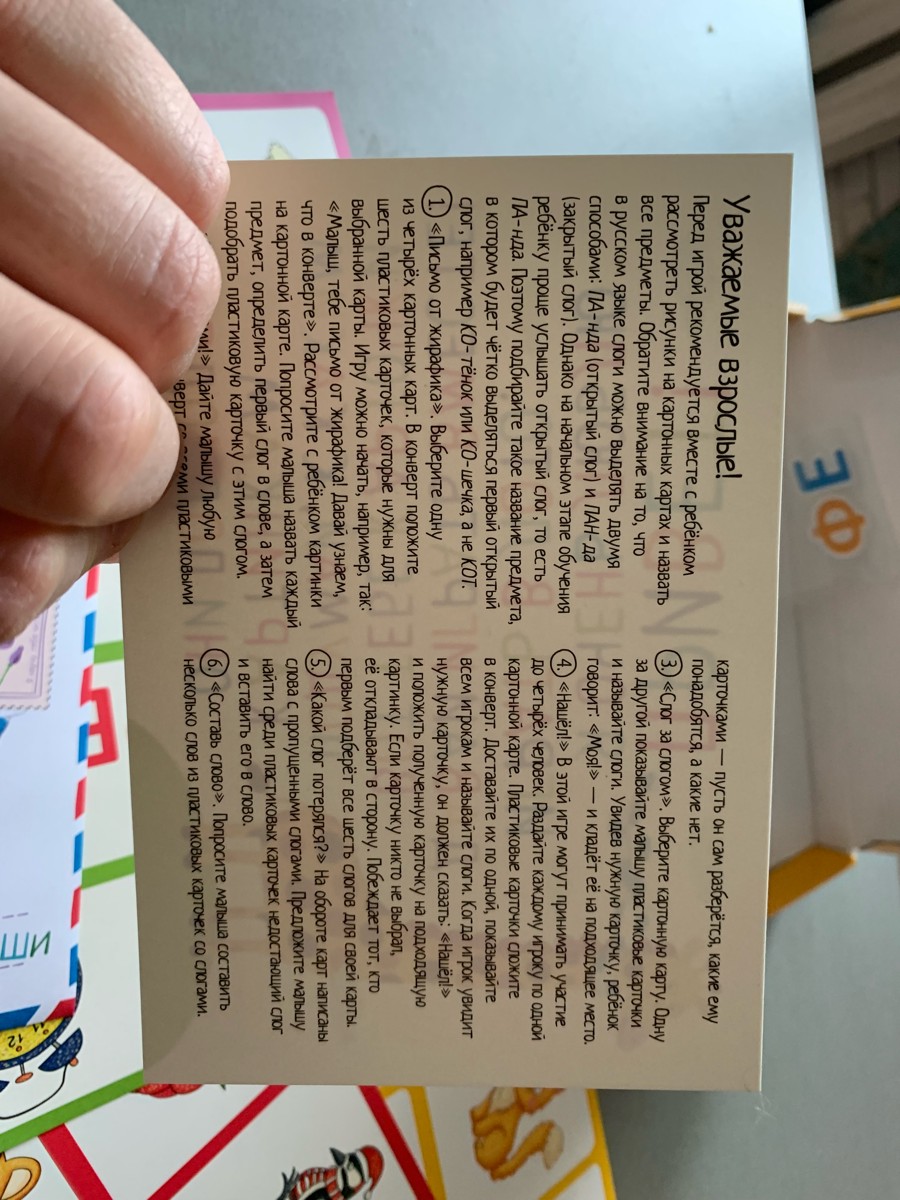 Уважаемые взрослые!
Перед игрой рекомендуется вместе с ребёнком
рассмотреть рисунки на картонных картах и назвать
все предметы. Обратите внимание на то, что
в русском языке слоги можно выделять двумя
способами: ПА-нда (открытый слог) и ПАН-да
(закрытый слог). Однако на начальном этапе обучения
ребёнку проще услышать открытый слог, то есть
ПА-нда. Поэтому подбирайте такое название предмета,
в котором будет чётко выделяться первый открытый
слог, например КО-тёнок или КО-шечка, а не КОТ.
1. «Письмо от жирафика». Выберите одну
из четырёх картонных карт. В конверт положите
шесть пластиковых карточек, которые нужны для
выбранной карты. Игру можно начать, например, так:
«Малыш, тебе письмо от жирафика! Давай узнаем,
что в конверте». Рассмотрите с ребёнком картинки
на картонной карте. Попросите малыша назвать каждый
предмет, определить первый слог в слове, а затем
подобрать пластиковую карточку с этим слогом.
Дайте малышу любую
пластиковыми
карточками — пусть он сам разберётся, какие ему
понадобятся, а какие нет.
3. «Слог за слогом». Выберите картонную карту. Одну
за другой показывайте малышу пластиковые карточки
и называйте слоги. Увидев нужную карточку, ребёнок
говорит: «Моя!» — и кладёт её на подходящее место.
4. «Нашёл!» В этой игре могут принимать участие
до четырёх человек. Раздайте каждому игроку по одной
картонной карте. Пластиковые карточки сложите
в конверт. Доставайте их по одной, показывайте
всем игрокам и называйте слоги. Когда игрок увидит
нужную карточку, он должен сказать: «Нашёл!»
и положить полученную карточку на подходящую
картинку. Если карточку никто не выбрал,
её откладывают в сторону. Побеждает тот, кто
первым подберёт все шесть слогов для своей карты.
5. «Какой слог потерялся?» На обороте карт написаны
слова с пропущенными слогами. Предложите малышу
найти среди пластиковых карточек недостающий слог
и вставить его в слово.
6. «Составь слово». Попросите малыша составить
несколько слов из пластиковых карточек со слогами.
ФЕ